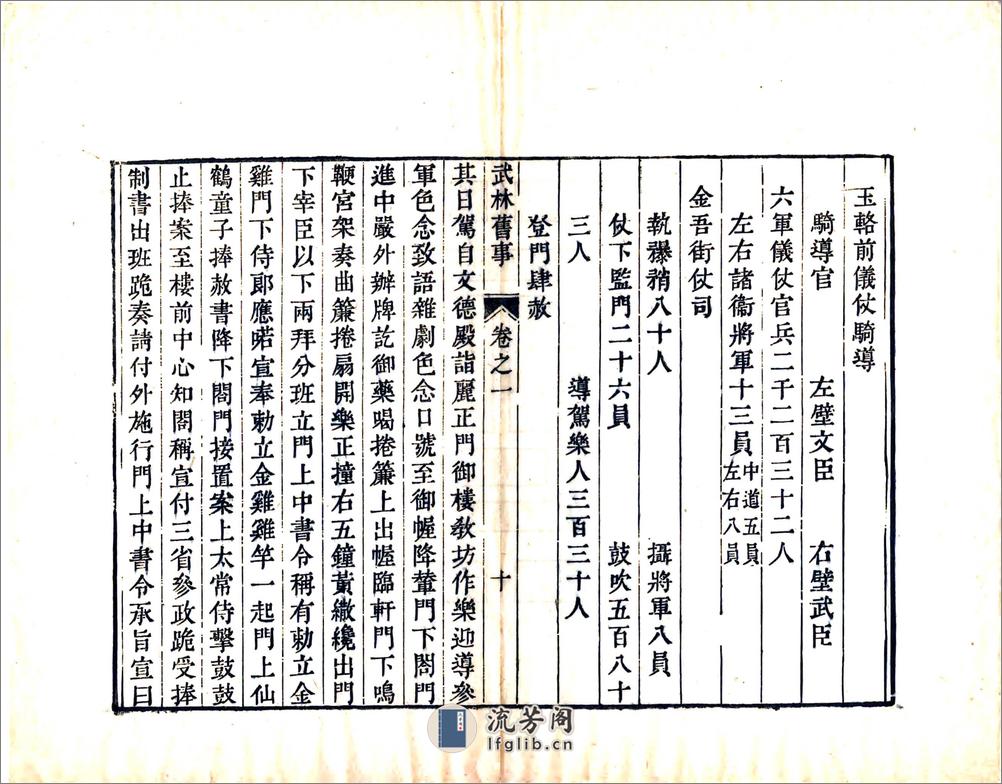 玉輅前儀仗騎導
騎導官　左壁文臣　右壁武臣
六軍儀仗官兵二千二百三十二人
左右諸衞將軍十三員中道五員左右八員
金吾街仗司
執㩧矟八十人　攝將軍八員
仗下監門二十六員　鼓吹五百八十
三人　導駕樂人三百三十人
登門肆赦
武林舊事　卷之一　十
其日駕自文德殿詣麗正門御樓教坊作樂迎導參
軍色念致語雜劇色念口號至御幄降輦門下閤門
進中嚴外辦牌訖御藥喝捲簾上出幄臨軒門下鳴
鞭宮架奏曲簾捲扇開樂正撞右五鐘黃繖纔出門
下宰臣以下兩拜分班立門上中書令稱有勅立金
雞門下侍郞應喏宣奉勅立金雞雞竿一起門上仙
鶴童子捧赦書降下閤門接置案上太常侍擊鼓鼓
止捧案至樓前中心知閤稱宣付三省參政跪受捧
制書出班跪奏請付外施行門上中書令承旨宣曰
流芳阁
lfglib.cn